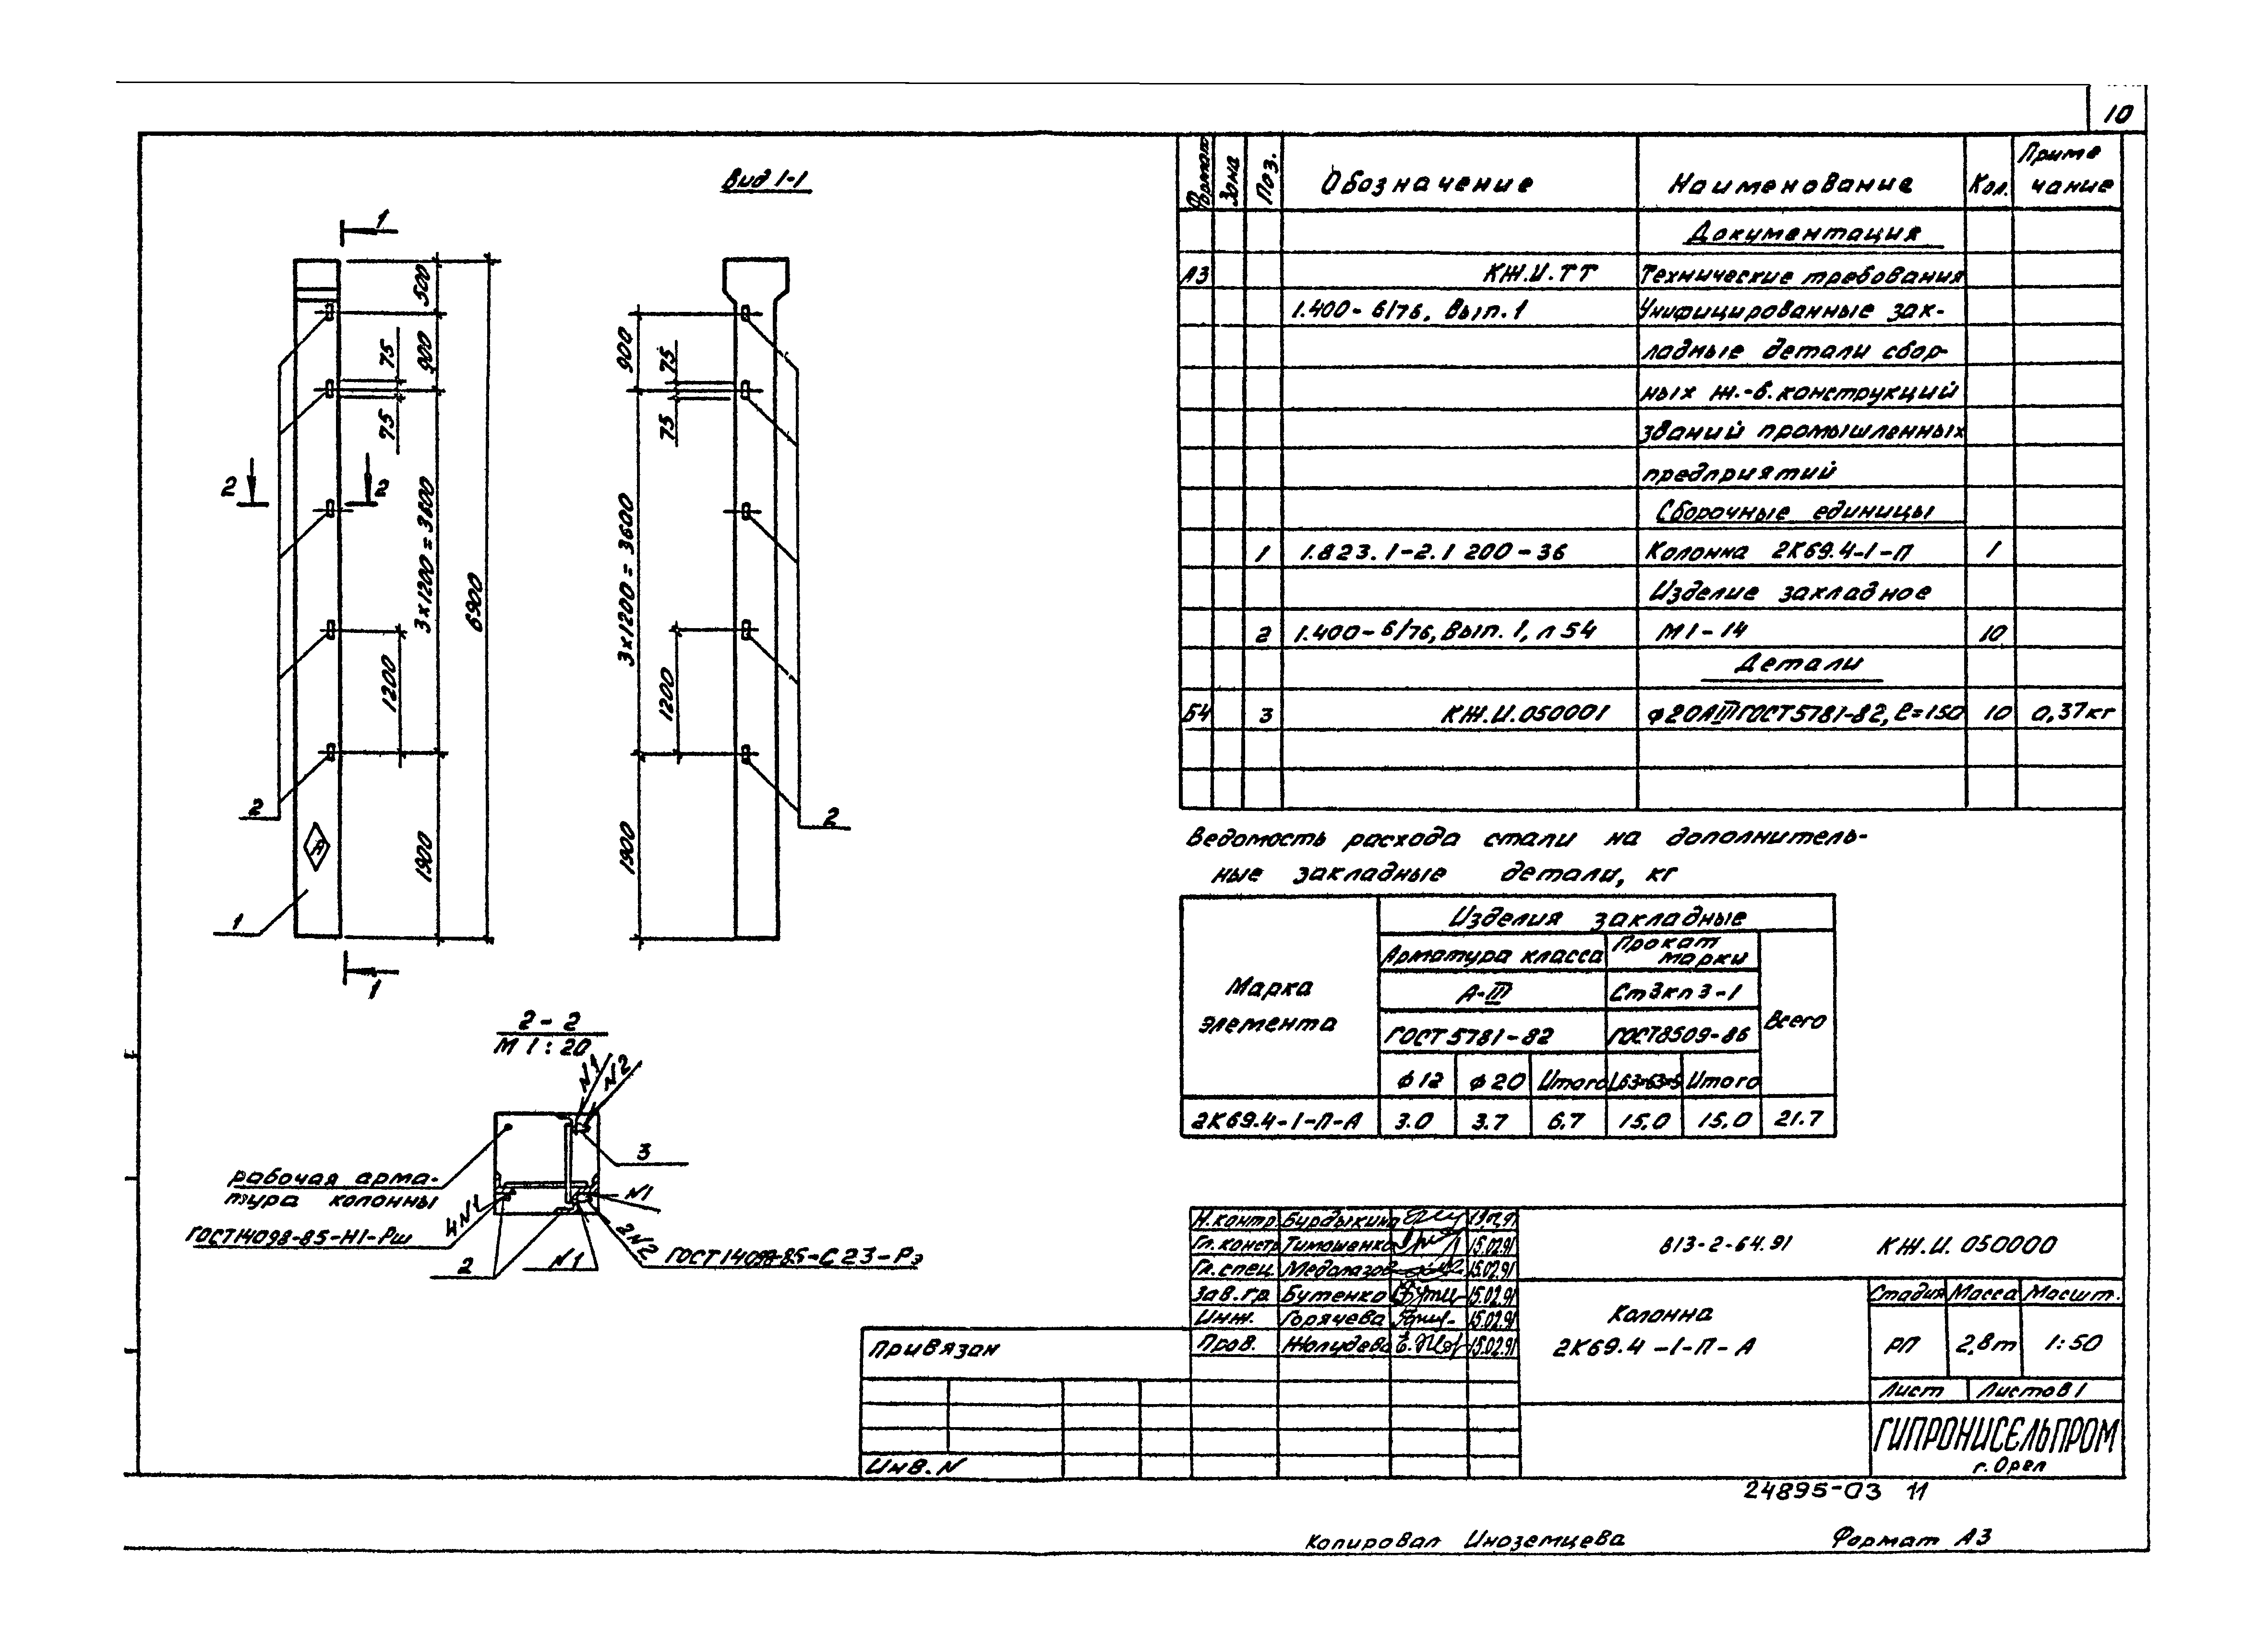 10
Вид 1-1
1
500
900
75
75
3х1200=3600
6900
1200
1900
2
2
2
1
1
900
75
75
3х1200=3600
1200
1900
2
2-2
М 1:20
N1
N2
3
рабочая арма-
тура колонны
4N1
ГОСТ14098-85-Н1-Рш
2
N1
N1
2N2
ГОСТ14098-85-С23-Рэ
Формат Зона Поз. Обозначение Наименование Кол. Приме
чание
Документация
А3 КЖ.И.ТТ Технические требования
1.400-6/76, Вып.1 Унифицированные зак-
ладные детали сбор-
ных ж.-б.конструкций
зданий промышленных
предприятий
Сборочные единицы
1 1.823.1-2.1 200-36 Колонна 2К69.4-1-П 1
Изделие закладное
2 1.400-6/76, Вып. 1, л 54 М1-14 10
Детали
Б4 3 КЖ.И.050001 ф20АIII ГОСТ5781-82, ℓ=150 10 0,37кг
Ведомость расхода стали на дополнитель-
ные закладные детали, кг
Марка
элемента
Изделия закладные
Арматура класса Прокат
марки
А-III Ст3кп3-1
Всего
ГОСТ5781-82 ГОСТ8509-86
ф12 ф20 Итого L63×63×5 Итого
2К69.4-1-П-А 3.0 3.7 6.7 15,0 15,0 21.7
Н.контр. Бурдыкина
Гл.констр Тимошенко 15.02.91
Гл.спец. Медолазов 15.02.91
Зав.гр. Бутенко 15.02.91
Инж. Горячева 15.02.91
Пров. Жолудева 15.02.91
813-2-64.91 КЖ.И. 050000
Колонна
2К69.4-1-П-А
Стадия Масса Масшт.
РП 2,8т 1:50
Лист Листов 1
ГИПРОНИСЕЛЬПРОМ
г.Орел
Привязан
Инв.N
24895-03 11
Копировал Иноземцева Формат А3